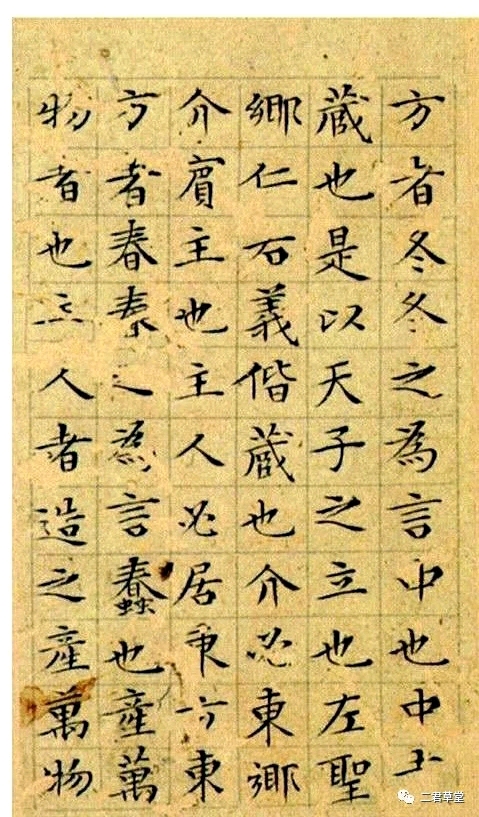 方者冬冬之為言中也中
蔵也是以天子之立也左聖
鄉仁石義偕蔵也介必東鄉
介賓主也主人必居東方東
方者春春之為言蠢也産萬
物者也主人者造之産萬物
二君草堂